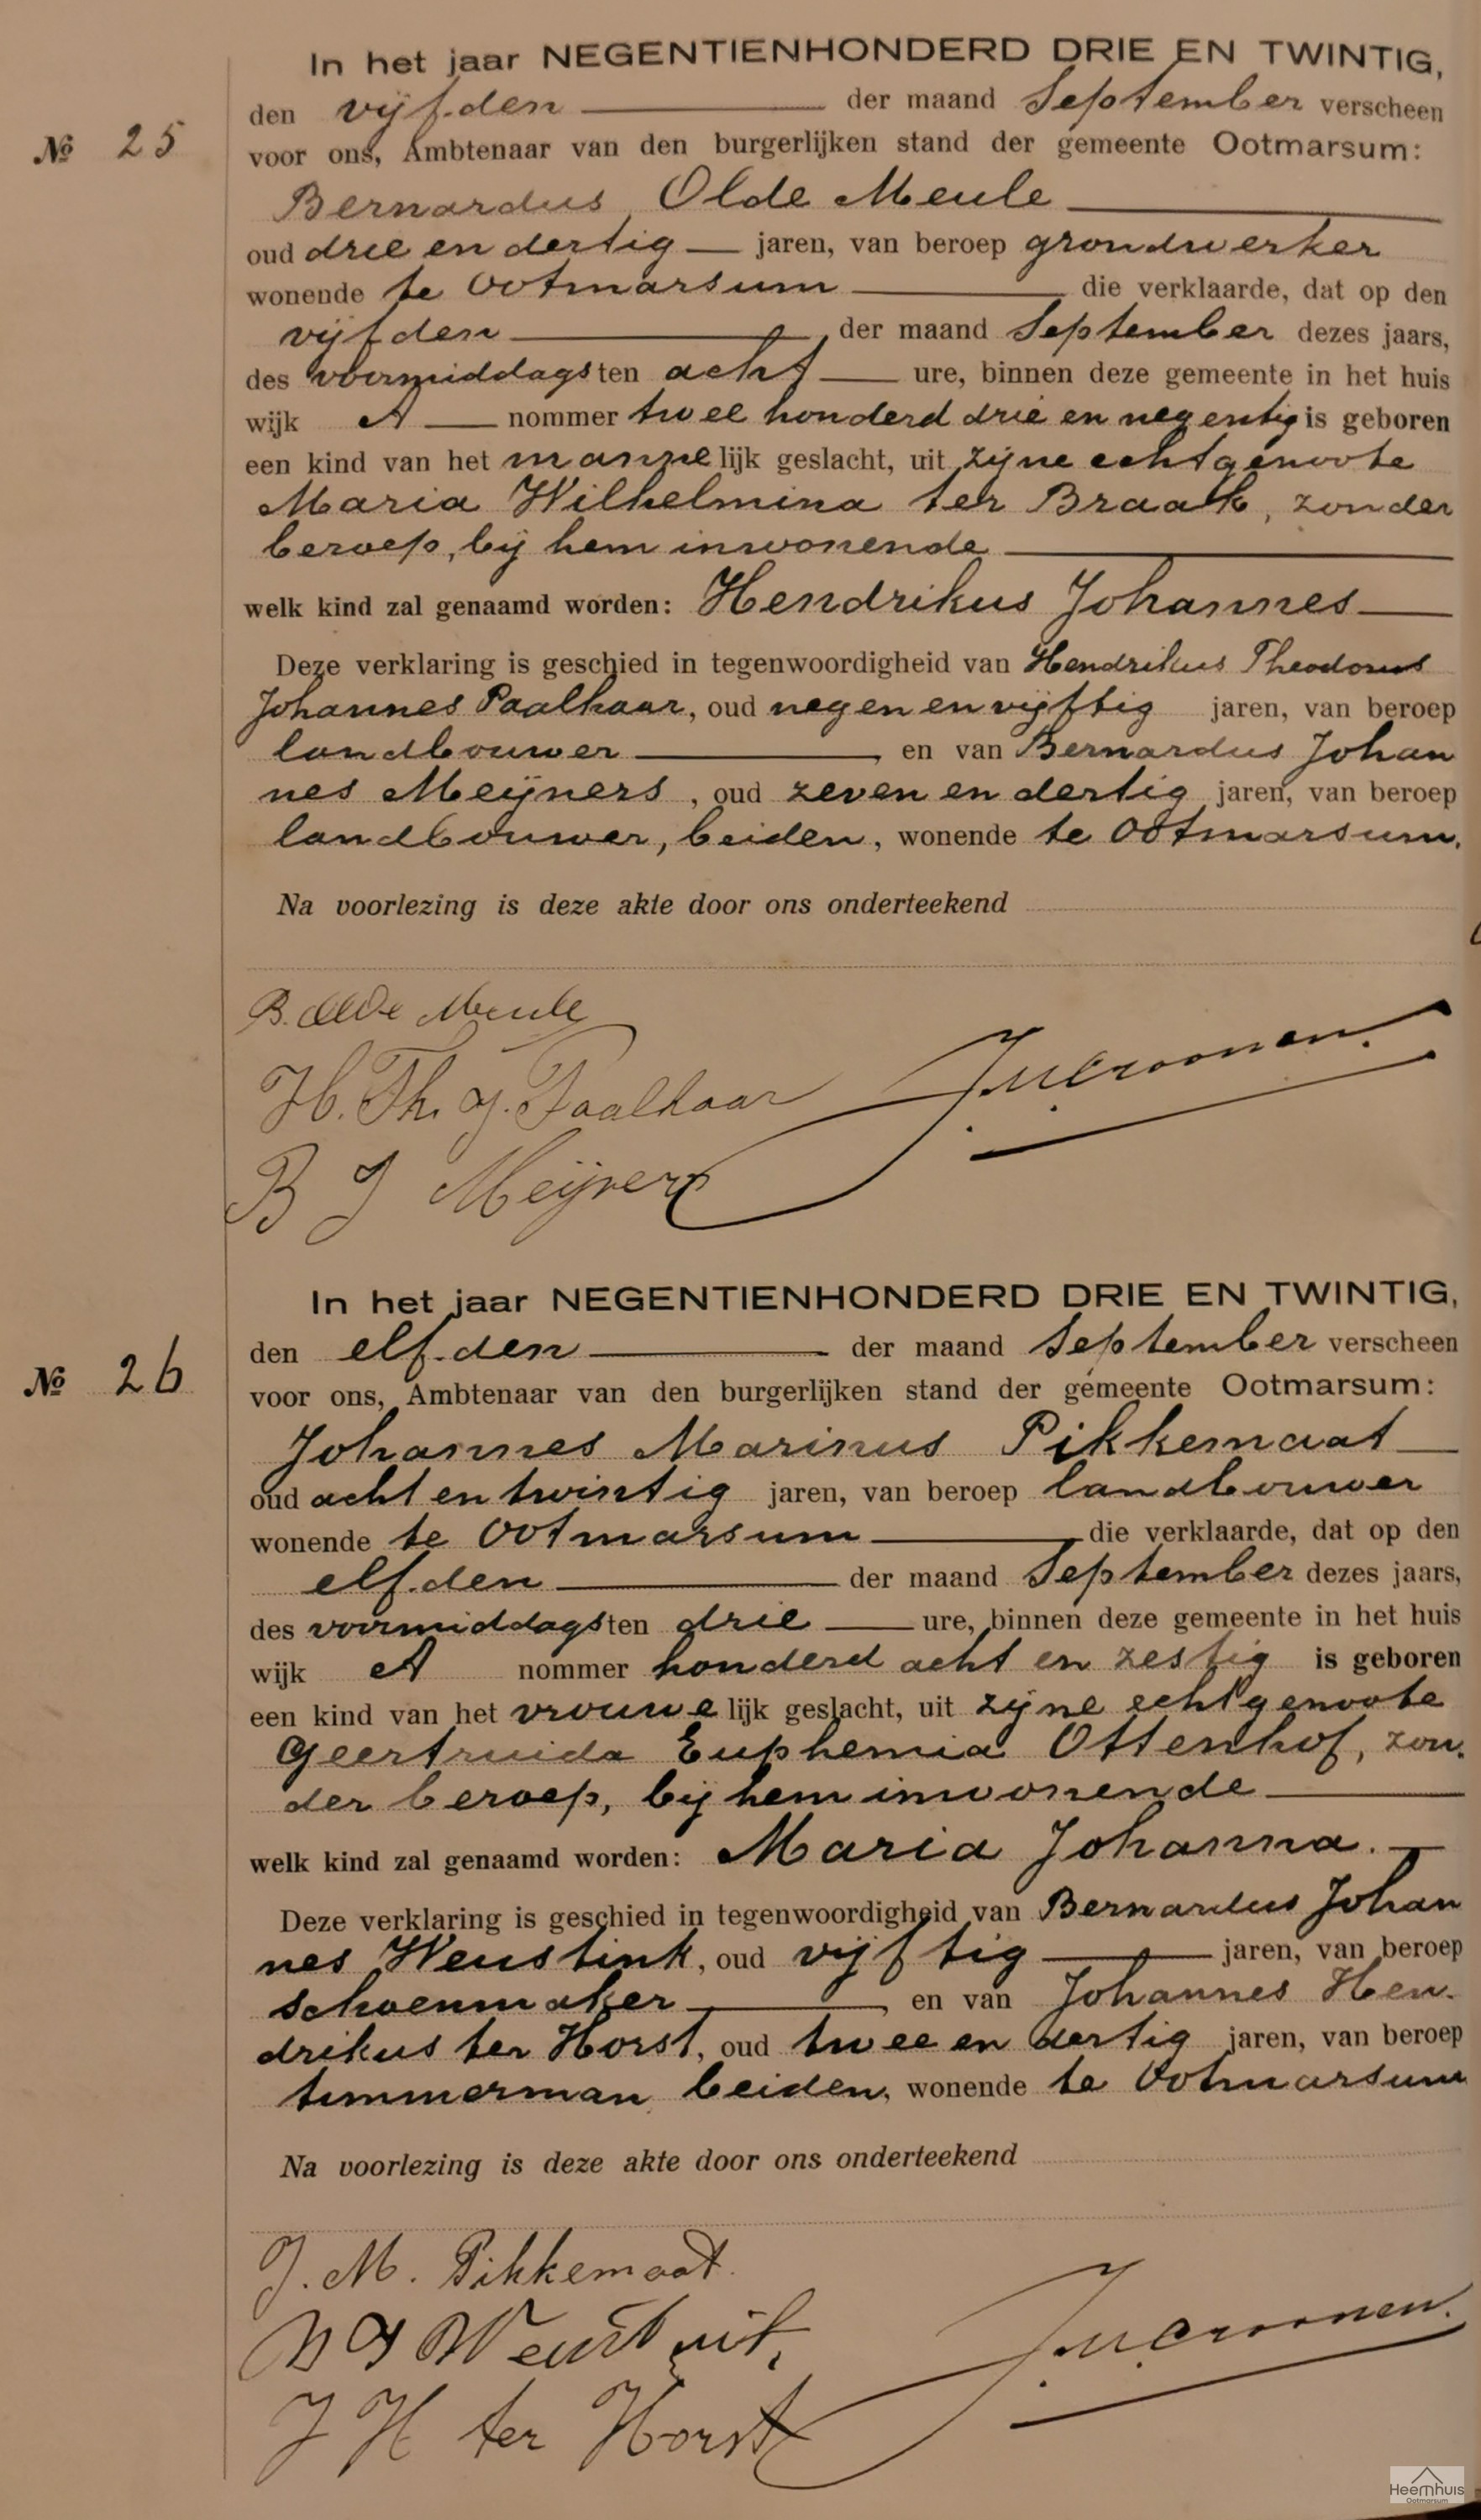 In het jaar NEGENTIENHONDERD DRIE EN TWINTIG,
den vijfden der maand September verscheen
№ 25
voor ons, Ambtenaar van den burgerlijken stand der gemeente Ootmarsum:
Bernardus Olde Meule
oud drie en dertig jaren, van beroep grondwerker
wonende te Ootmarsum die verklaarde, dat op den
vijfden der maand September dezes jaars,
des voormiddags ten acht ure, binnen deze gemeente in het huis
wijk A nommer twee honderd drie en negentig is geboren
een kind van het mannelijk geslacht, uit zijne echtgenoote
Maria Wilhelmina ter Braak, zonder
beroep, bij hem inwonende
welk kind zal genaamd worden: Hendrikus Johannes
Deze verklaring is geschied in tegenwoordigheid van Hendrikus Theodorus
Johannes Paalhaar, oud negen en vijftig jaren, van beroep
landbouwer, en van Bernardus Johan
nes Meijners, oud zeven en dertig jaren, van beroep
landbouwer, beiden, wonende te Ootmarsum.
Na voorlezing is deze akte door ons onderteekend
B. Olde Meule
H. Th. J. Paalhaar
B J Meijners
In het jaar NEGENTIENHONDERD DRIE EN TWINTIG,
den elfden der maand September verscheen
№ 26
voor ons, Ambtenaar van den burgerlijken stand der gemeente Ootmarsum:
Johannes Marinus Pikkemaat
oud acht en twintig jaren, van beroep landbouwer
wonende te Ootmarsum die verklaarde, dat op den
elfden der maand September dezes jaars,
des voormiddags ten drie ure, binnen deze gemeente in het huis
wijk A nommer honderd acht en zestig is geboren
een kind van het vrouwelijk geslacht, uit zijne echtgenoote
Geertruida Euphemia Ottenhof, zon-
der beroep, bij hem inwonende
welk kind zal genaamd worden: Maria Johanna.
Deze verklaring is geschied in tegenwoordigheid van Bernardus Johan
nes Weustink, oud vijftig jaren, van beroep
schoenmaker, en van Johannes Hen-
drikus ter Horst, oud twee en dertig jaren, van beroep
timmerman beiden, wonende te Ootmarsum
Na voorlezing is deze akte door ons onderteekend
J. M. Pikkemaat.
J H ter Horst
Heemhuis
Ootmarsum